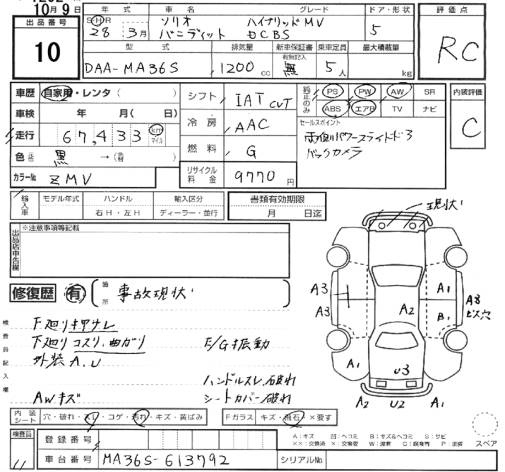 10月9日
出品番号
10
年式
車名
グレード
ドア・形状
評価点
SHR
28年 3月
ソリオ ハイブリッドMV
バンディット DCBS
5
型式
排気量
新車保証書
乗車定員
最大積載量
DAA-MA36S
1200 cc
有 無
5人
kg
RC
車歴 自家用・レンタ ( )
シフト IAT CVT
装備品純正のみ
PS PW AW SR
ABS エアB TV ナビ
内装評価
C
車検 年 月( 日)
冷房 AAC
セールスポイント
両側パワースライドドア
バックカメラ
走行 67,433 km マイル
色 黒
燃料 G
カラーNo ZMV
リサイクル料金 9770円
輸入車
モデル年式
ハンドル
右H・左H
輸入区分
ディーラー・並行
書類有効期限
月 日迄
※注意事項等記載
出品店申告欄
現状
修復歴 有
箇所
事故現状
A3
A3
A2
A1
B1
A8
ビス穴
A1
U3
A1
A2
U2
A1
検査員記入欄
下廻りキサナレ
下廻りコスリ、曲ガリ
外装A.U
E/G振動
ハンドルスレ、破れ
シートカバー破れ
AWキズ
内装シート
穴・破れ・スレ・コゲ・汚れ・キズ・黄ばみ
Fガラス
キズ・飛石・×要す
A:キズ
B:キズ&ヘコミ
S:サビ
スペア
検査員
11
登録番号
車台番号 MA36S-613792
シリアルNo.